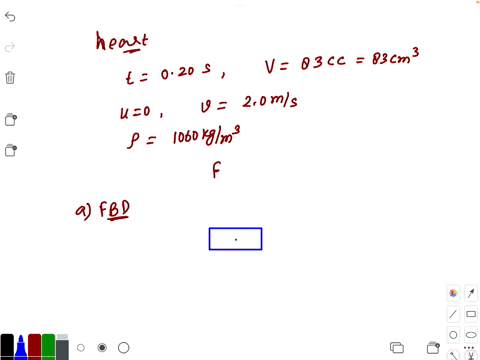 heart
t = 0.20 s , V = 83 cc = 83 cm³
u = 0 , v = 2.0 m/s
ρ = 1060 kg/m³
F
a) FBD